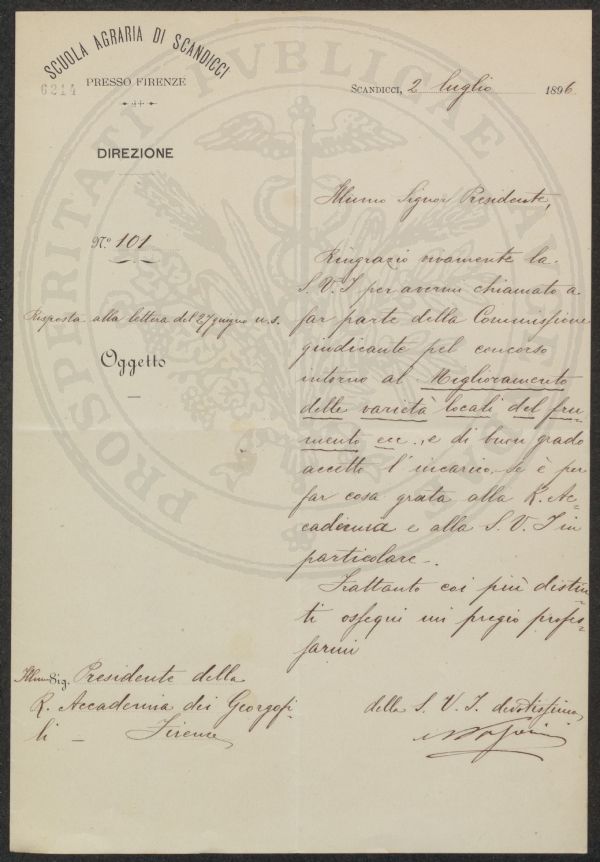 SCUOLA AGRARIA DI SCANDICCI
6214
PRESSO FIRENZE
SCANDICCI, 2 luglio 1896.
DIREZIONE
N.° 101
Risposta alla lettera del 27 giugno u. s.
Oggetto
Illumo Signor Presidente,
Ringrazio vivamente la
S. V. I per avermi chiamato a
far parte della Commissione
giudicante pel concorso
intorno al Miglioramento
delle varietà locali del fru-
mento ecc., e di buon grado
accetto l'incarico, se è per
far cosa grata alla R. Ac-
cademia e alla S. V. I in
particolare.
Frattanto coi più distin-
ti ossequi mi pregio profes-
sarmi
della S. V. I. devotissimo
Illumo Sig. Presidente della
R. Accademia dei Georgofi-
li — Firenze
PROSPERITATI PVBLICAE AVGENDAE